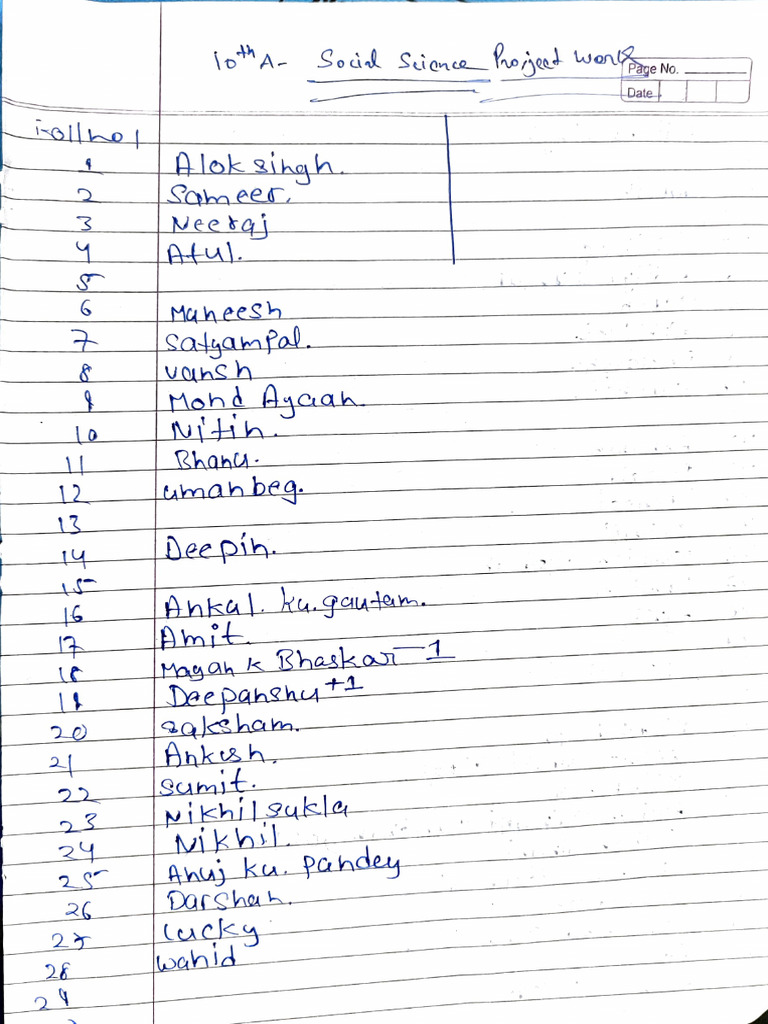 10th A- Social Science Project Work
Page No.
Date
Rollno
1 Alok singh.
2 Sameer.
3 Neeraj
4 Atul.
5
6 Maneesh
7 Satyampal.
8 vansh
9 Mohd Ayaan
10 Nitin.
11 Bhanu.
12 umanbeg.
13
14 Deepin.
15
16 Ankul. ku. gautam.
17 Amit.
18 Mayank Bhaskar - 1
19 Deepanshu +1
20 saksham.
21 Ankush.
22 sumit.
23 Nikhil sukla
24 Nikhil.
25 Anuj ku. pandey
26 Darshan.
27 lucky
28 wahid
29